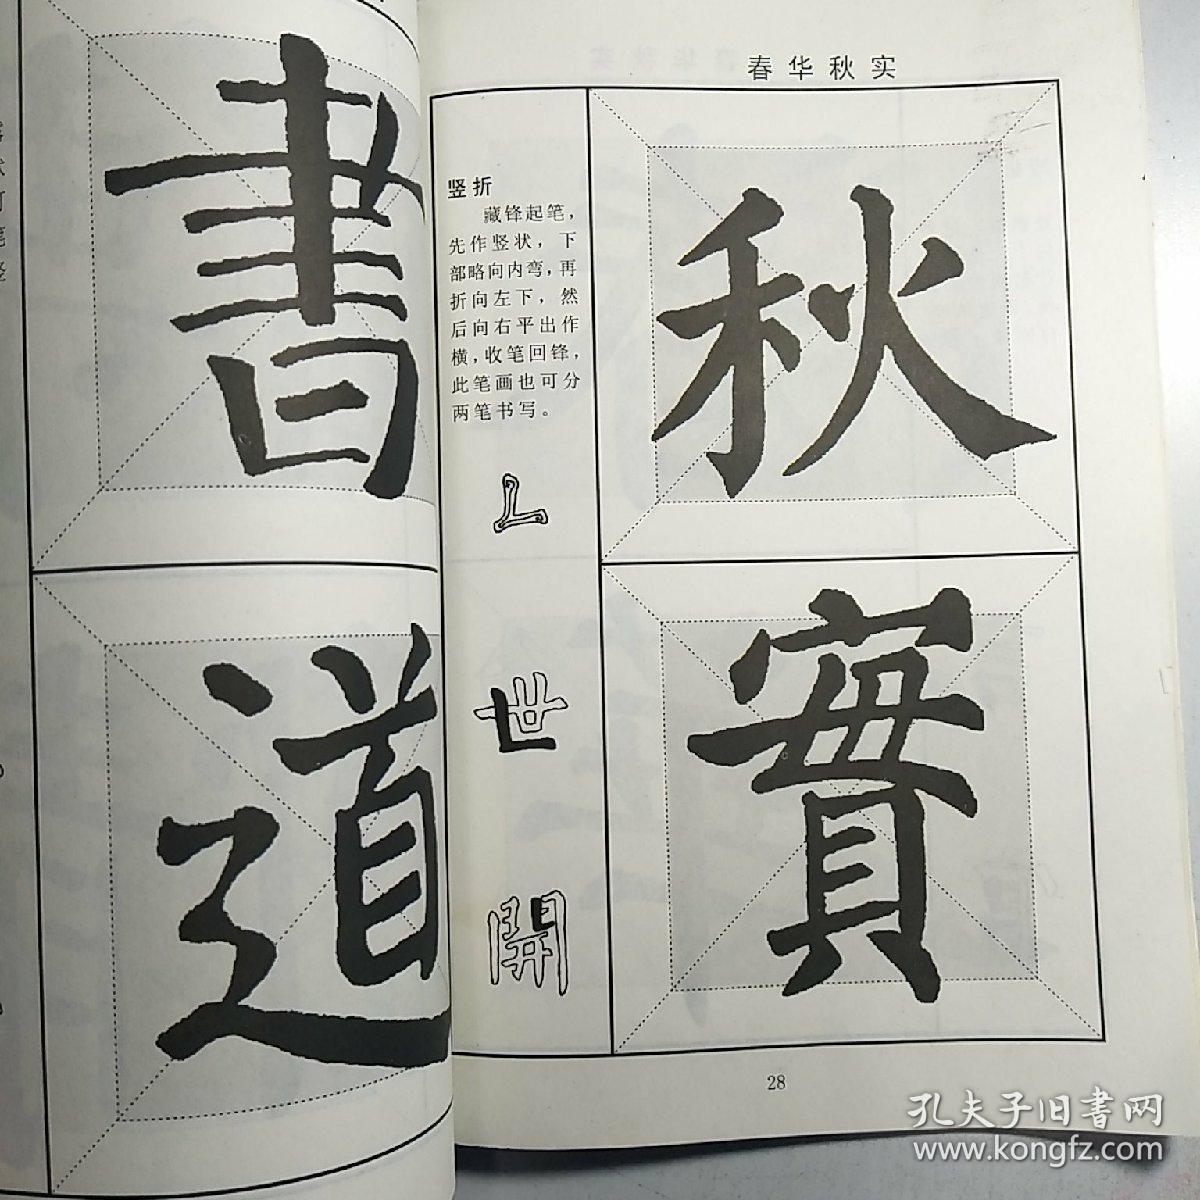 書
道
春华秋实
竖折
藏锋起笔，
先作竖状，下
部略向内弯，再
折向左下，然
后向右平出作
横，收笔回锋，
此笔画也可分
两笔书写。
世
開
秋
實
28
孔夫子旧書网
www.kongfz.com